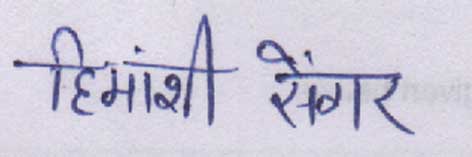 हिमांशी सेंगर